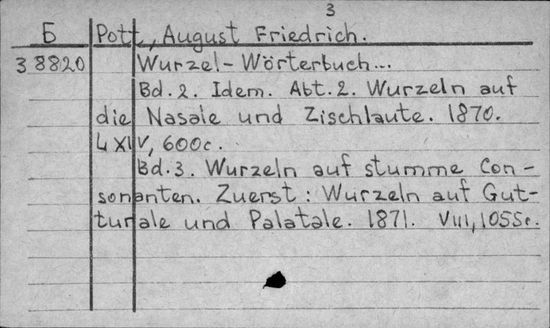 3
Б Pott, August Friedrich.
38820 Wurzel-Wörterbuch...
Bd.2. Idem. Abt.2. Wurzeln auf
die Nasale und Zischlaute. 1870.
LXIV, 600c.
Bd.3. Wurzeln auf stumme Con-
sonanten. Zuerst: Wurzeln auf Gut-
turale und Palatale. 1871. VIII, 1055c.